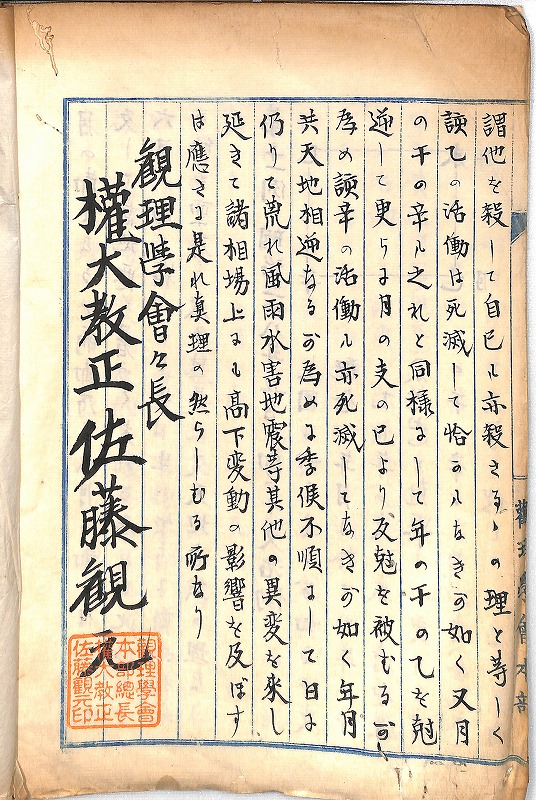 謂他を殺して自己ル亦殺さるゝの理と等しく
該乙の活働は死滅して恰かルなきが如く又月
の干の辛ル之れと同様にして年の干の乙を尅
逆して更らに月の支の巳より反尅を被むるが
為め該辛の活働ル亦死滅してなきが如く年月
共天地相逆なるが為めに季候不順にして日に
仍りて荒れ風雨水害地震等其他の異変を来し
延きて諸相場上にル高下変動の影響を及ぼす
は應さに是れ真理の然らしむる所なり
觀理学會々長
權大教正佐藤觀元
觀理學會
本部總長
權大教正
佐藤觀元印